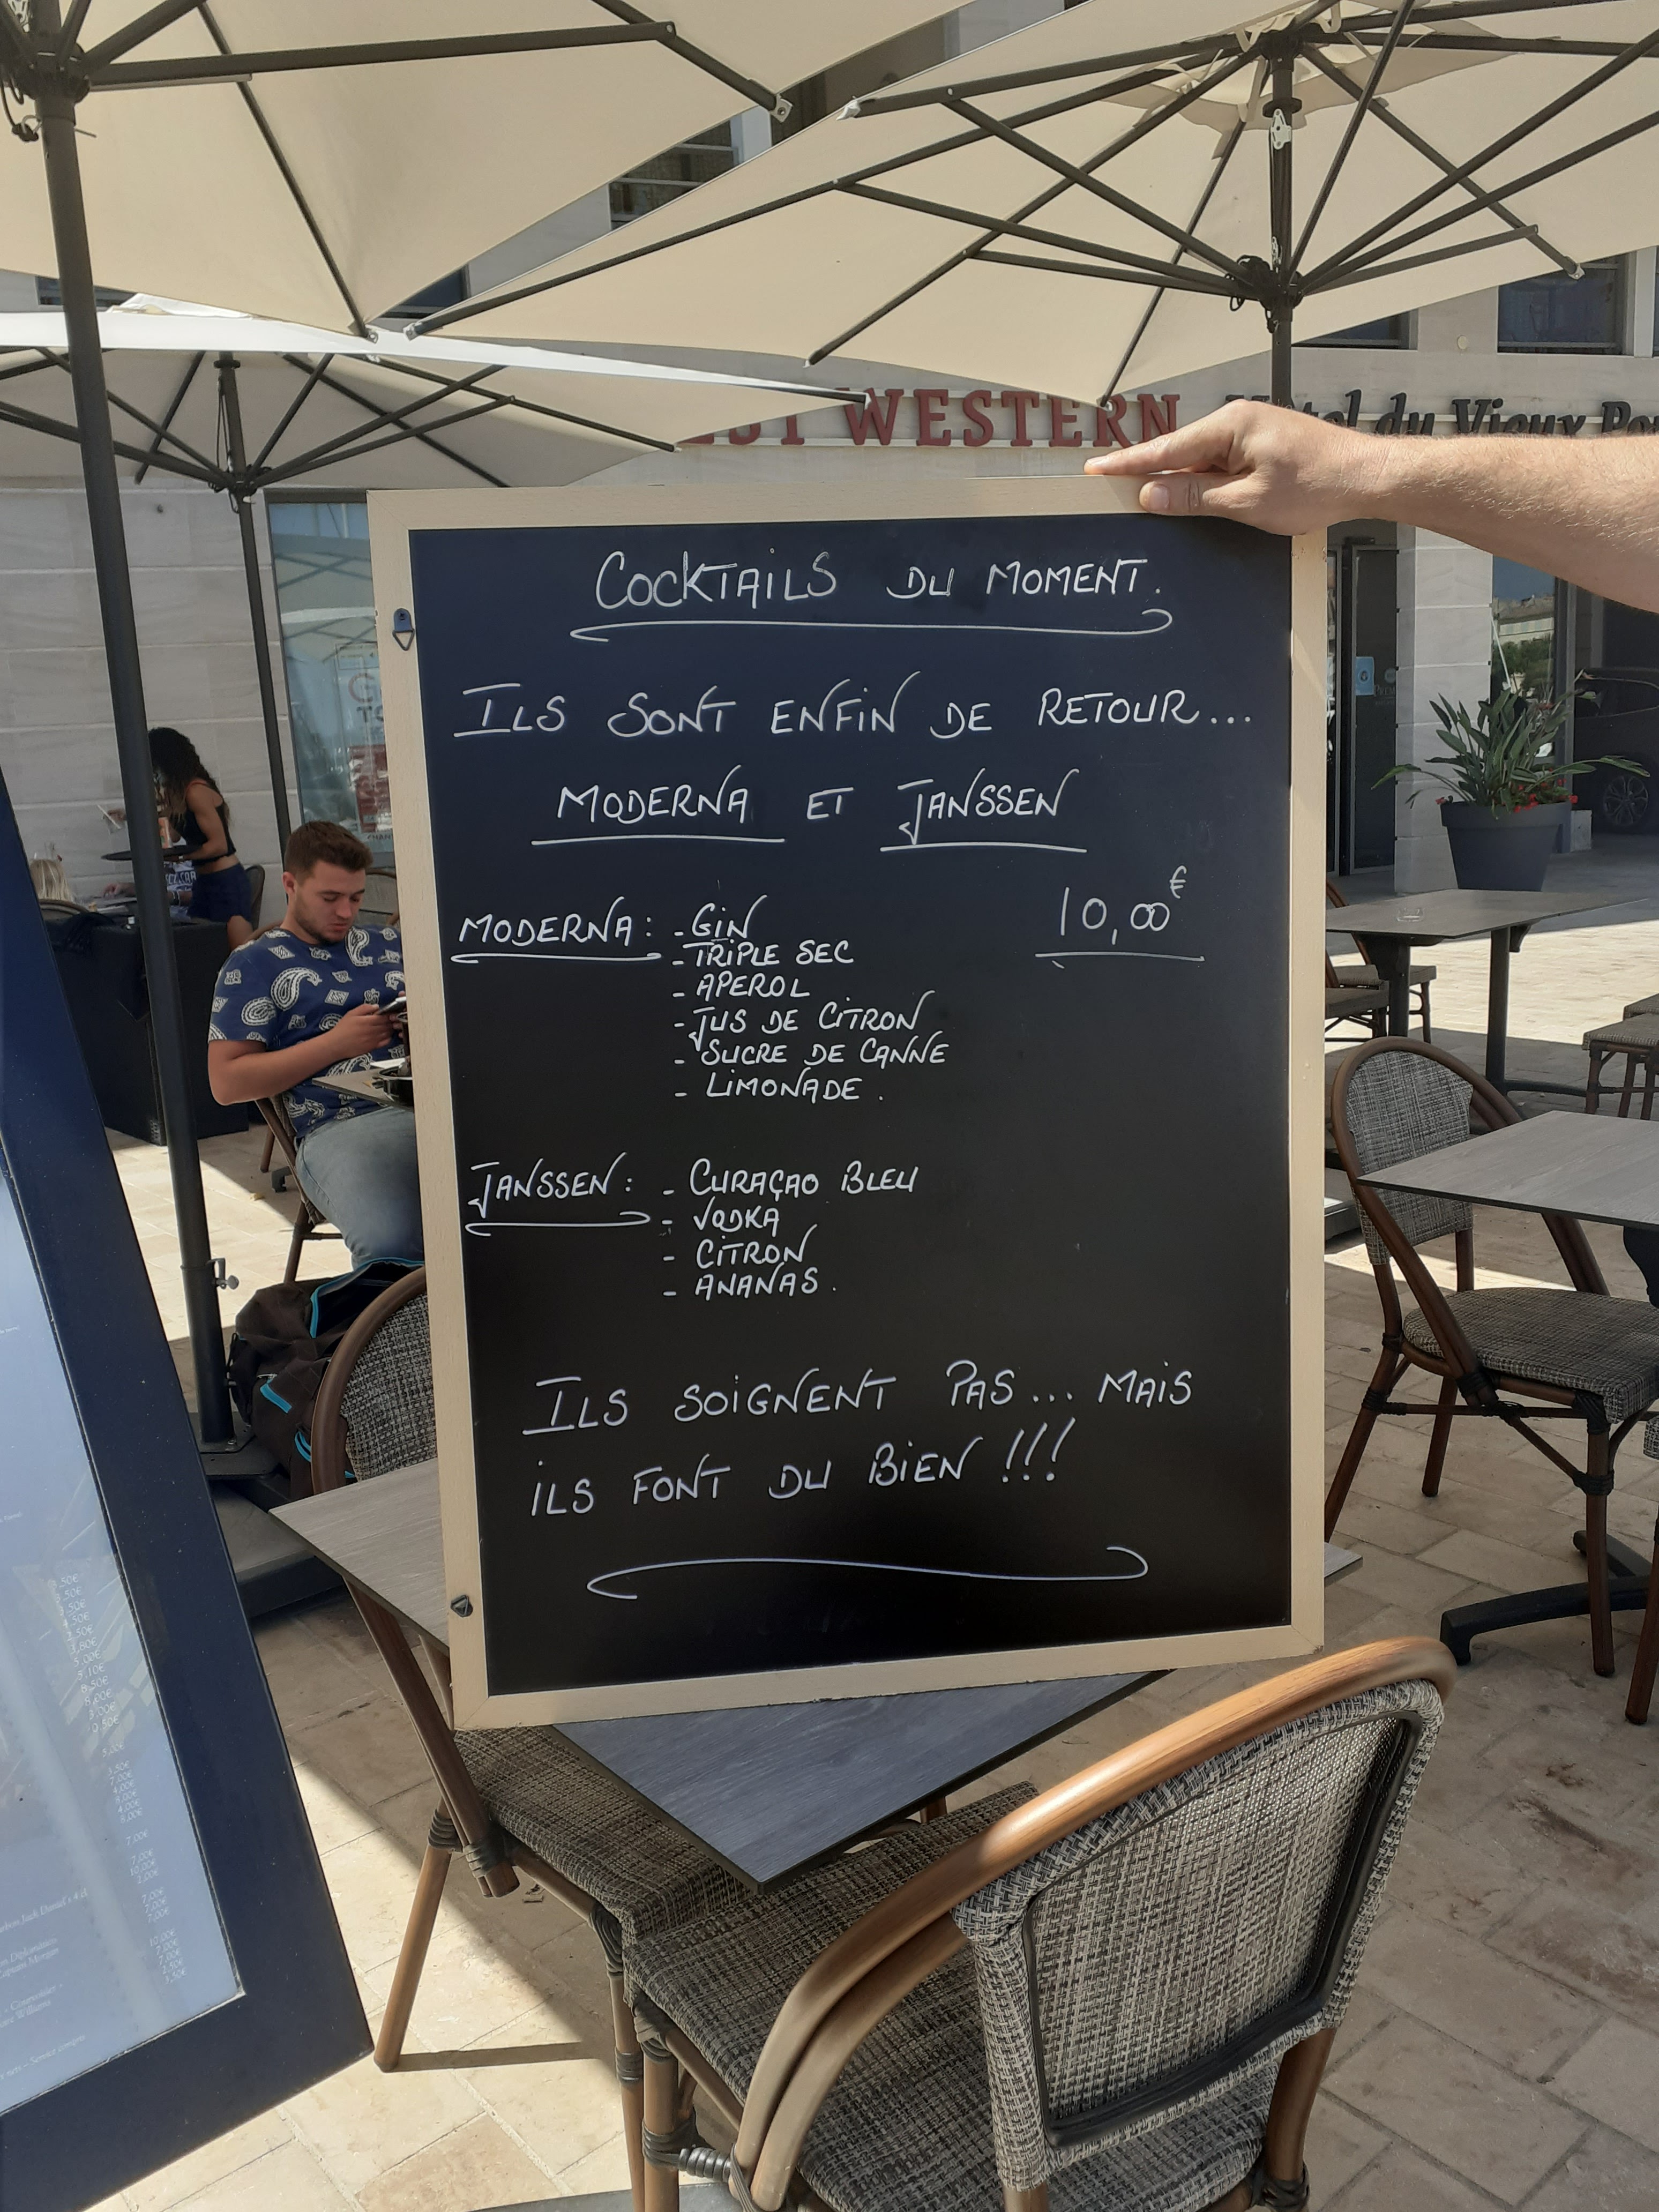 WESTERN Hôtel du Vieux
COCKTAILS DU MOMENT.
ILS SONT ENFIN DE RETOUR...
MODERNA ET JANSSEN
MODERNA: - GIN 10,00€
- TRIPLE SEC
- APEROL
- JUS DE CITRON
- SUCRE DE CANNE
- LIMONADE.
JANSSEN: - CURAÇAO BLEU
- VODKA
- CITRON
- ANANAS.
ILS SOIGNENT PAS... MAIS
ILS FONT DU BIEN !!!